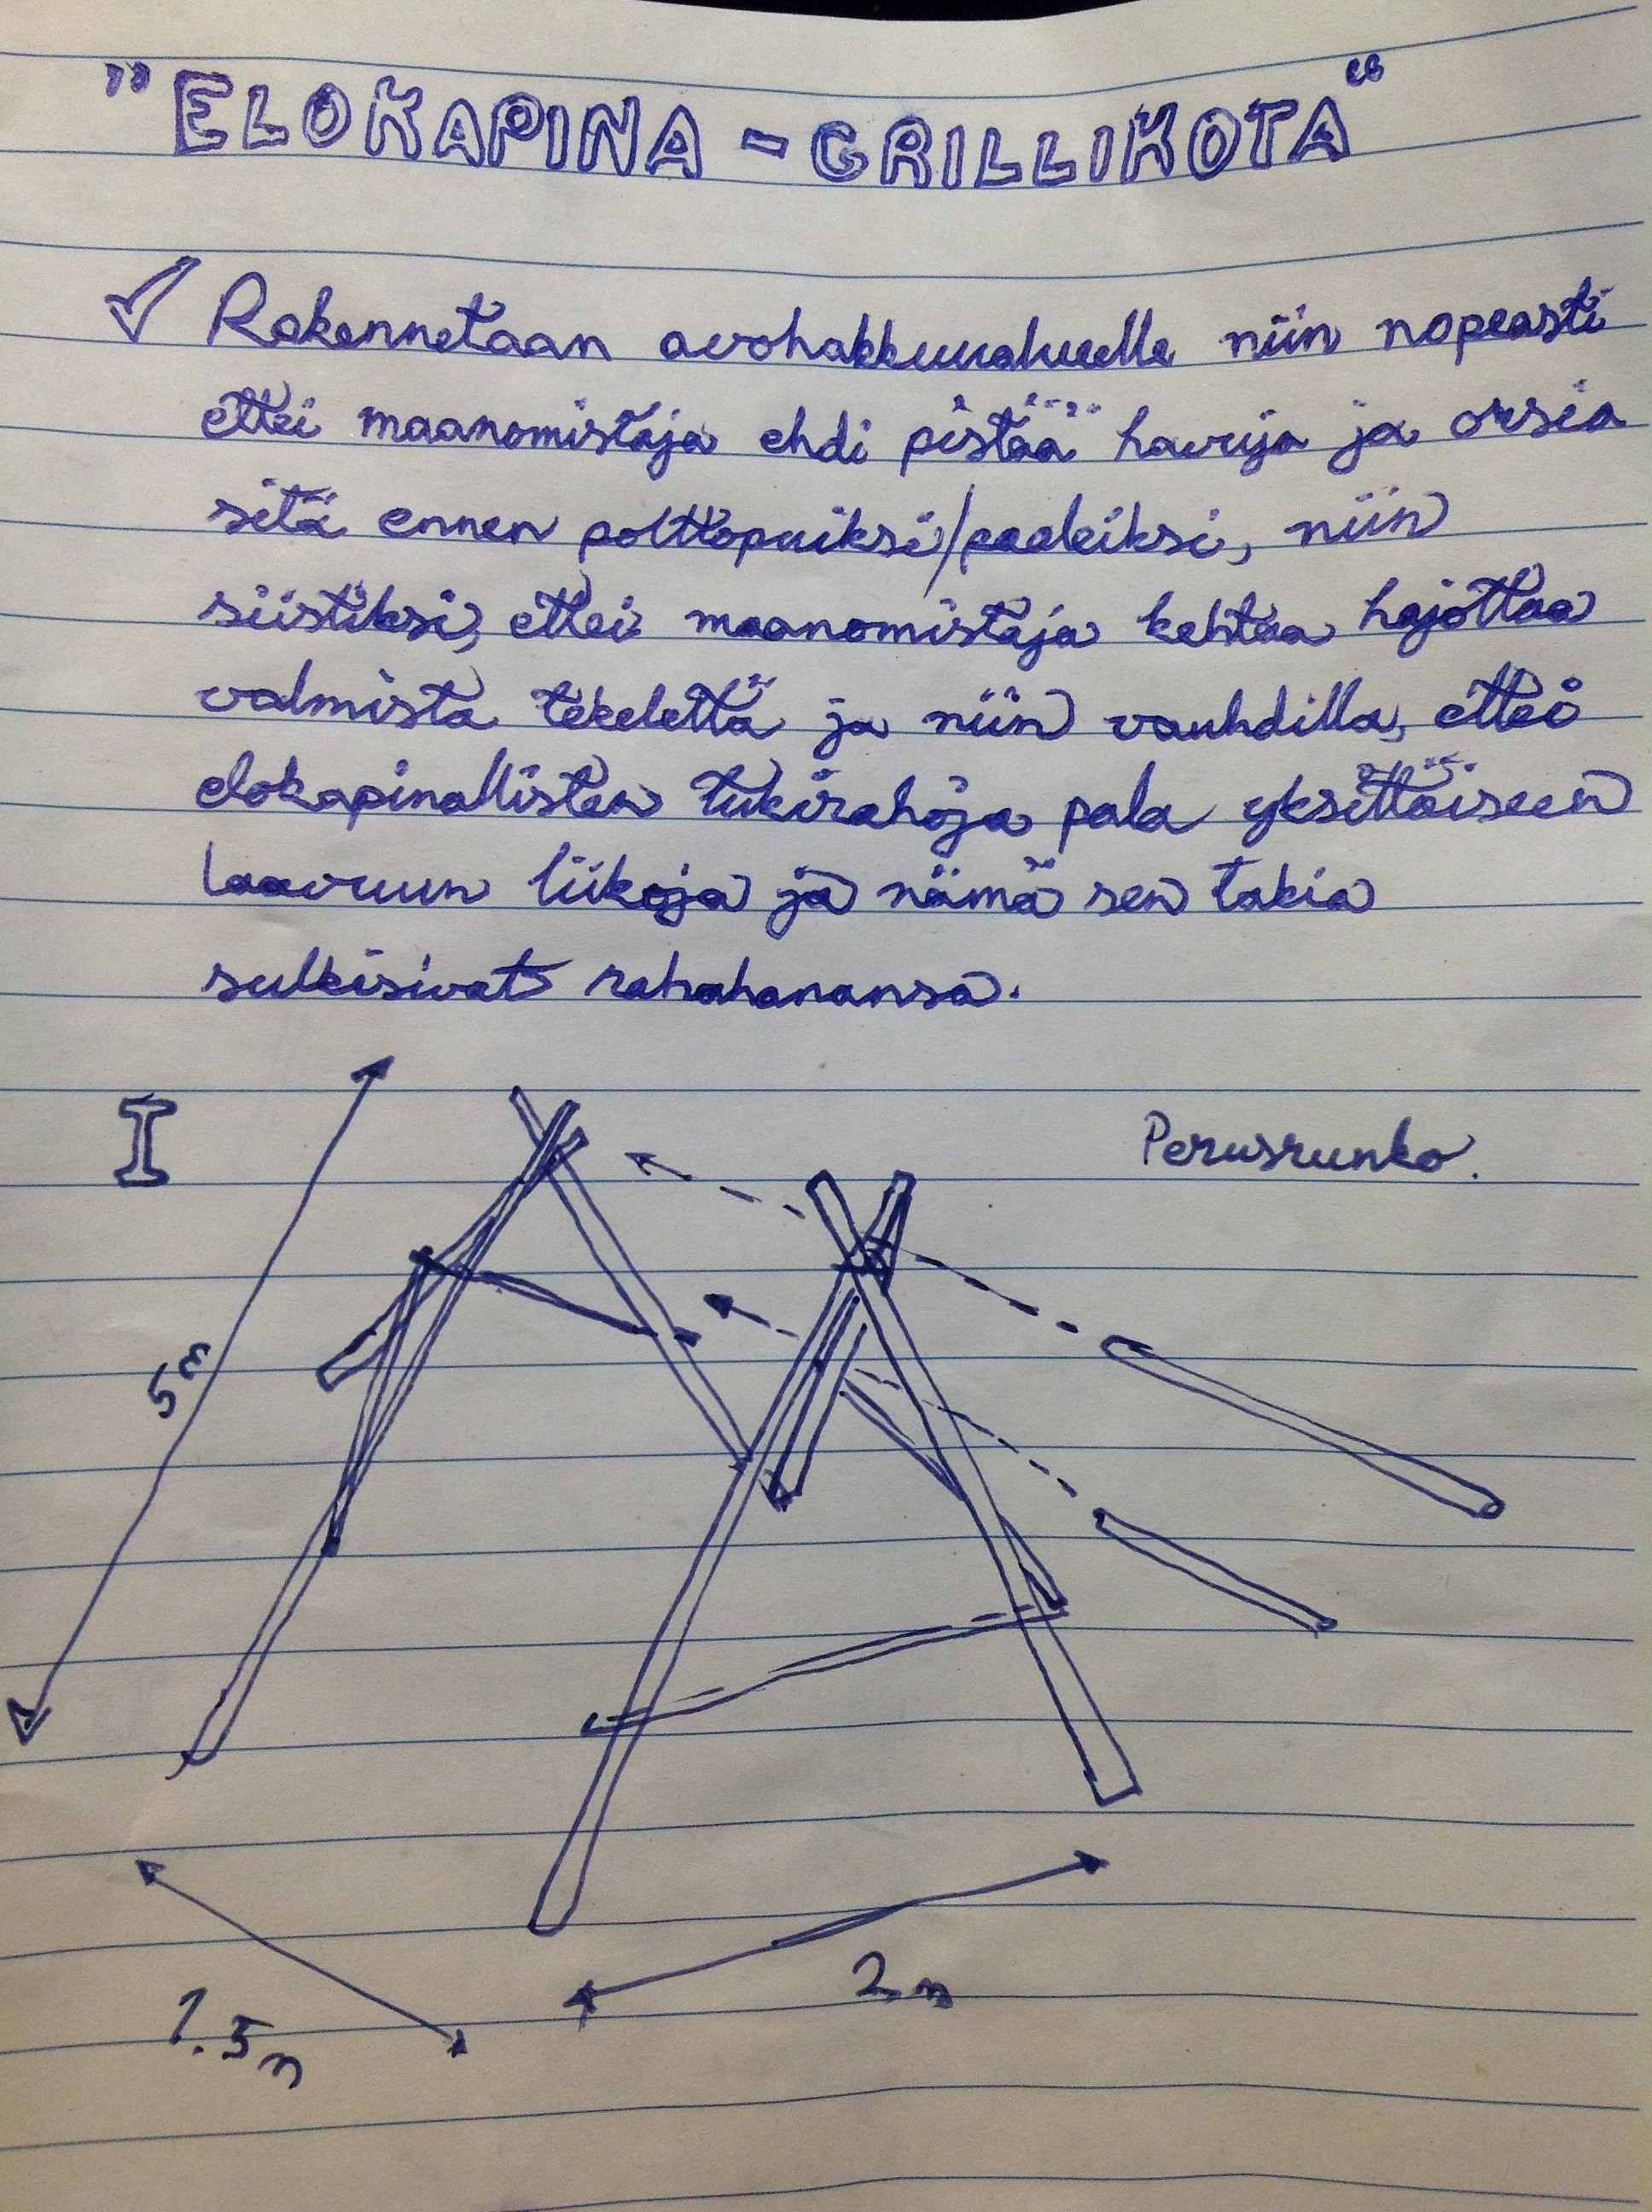 "ELOKAPINA - GRILLIKOTA"
✓ Rakennetaan avohakkuualueelle niin nopeasti
ettei maanomistaja ehdi pistää havuja ja orsia
sitä ennen polttopuiksi/paaleiksi, niin
siistiksi, ettei maanomistaja kehtaa hajottaa
valmista tekelettä ja niin vauhdilla, ettei
elokapinallisten tukirahoja pala yksittäiseen
laavuun liikoja ja nämä sen takia
sulkisivat rahahanansa.
I
Perusrunko.
5m
1.5m
2m